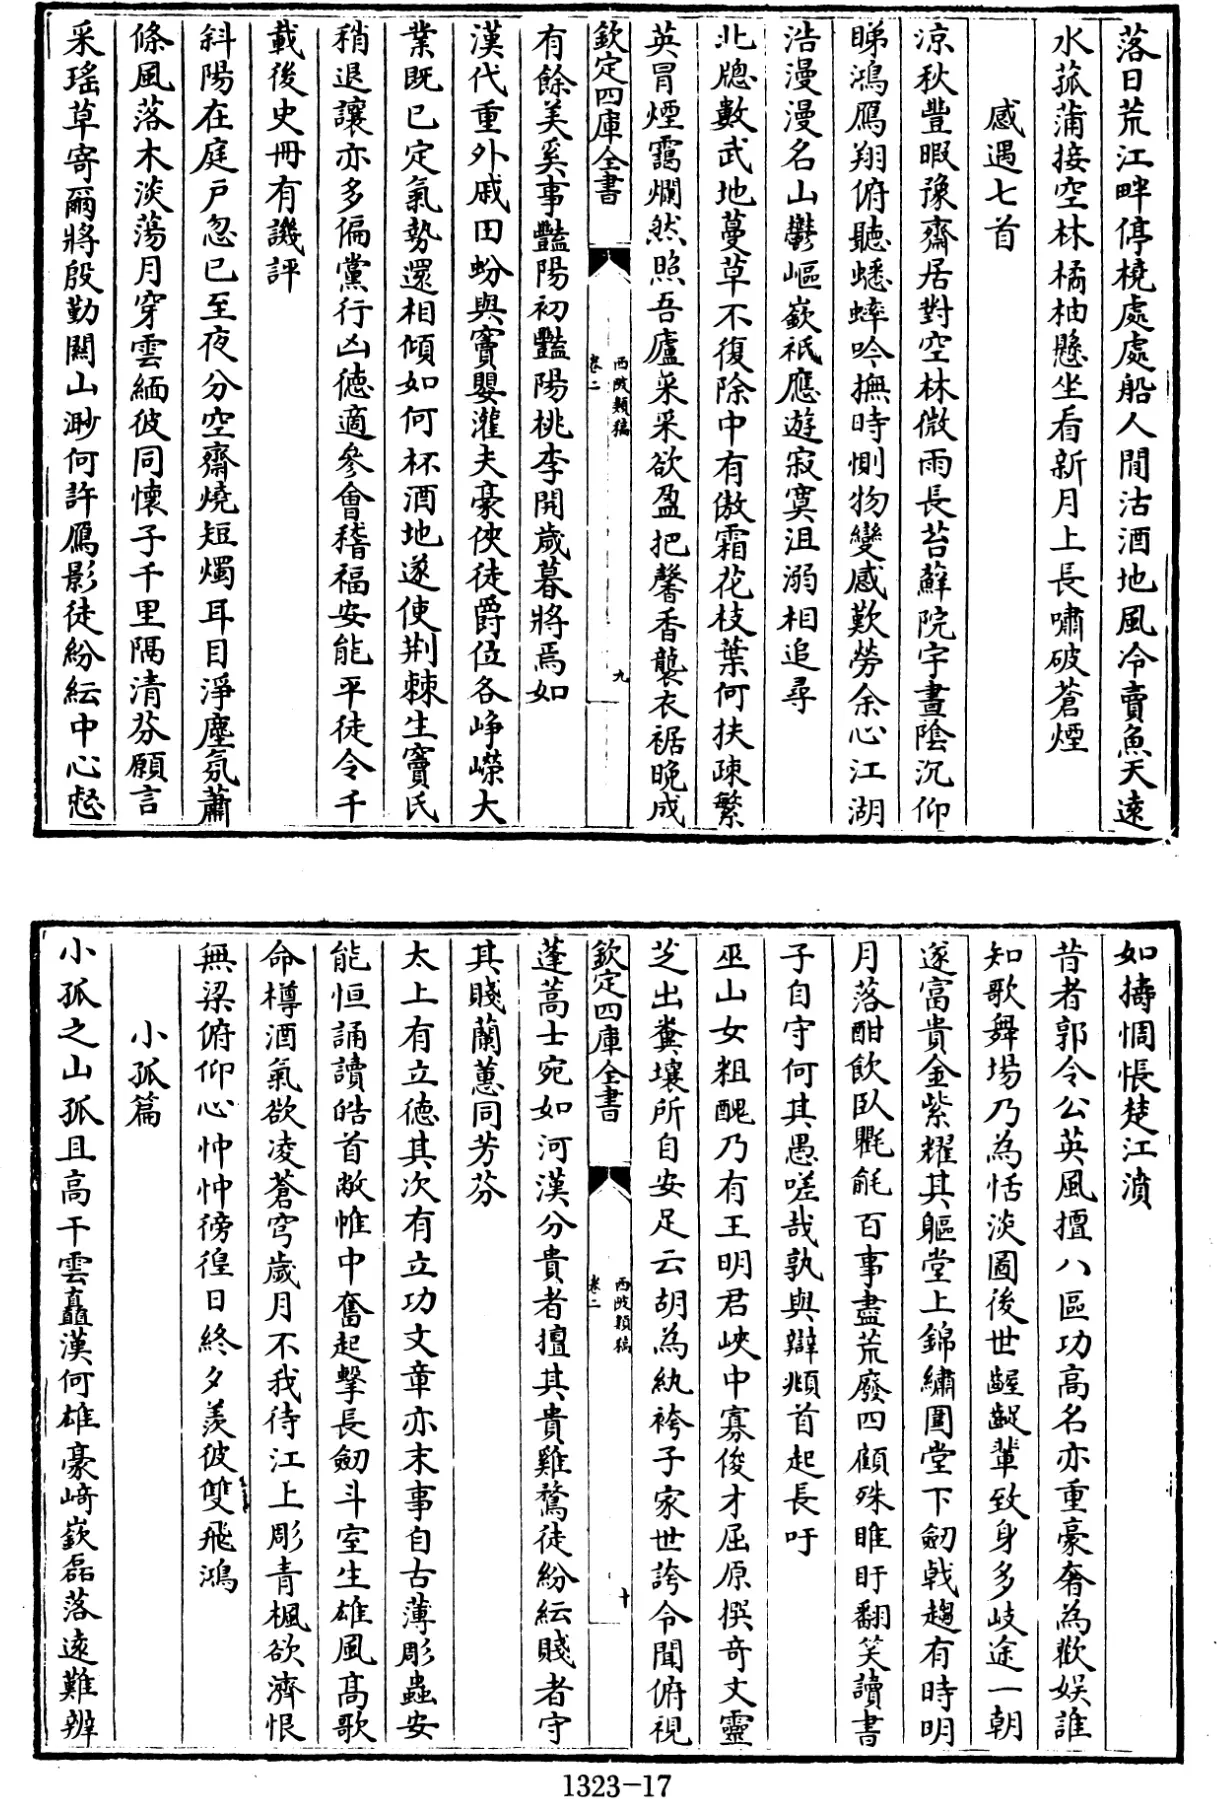 落日荒江畔停橈處處船人閒沽酒地風冷賣魚天遠
水菰蒲接空林橘柚懸坐看新月上長嘯破蒼煙
感遇七首
涼秋豐暇豫齋居對空林微雨長苔蘚院宇晝陰沉仰
睇鴻鴈翔俯聽蟋蟀吟撫時惻物變感歎勞余心江湖
浩漫漫名山鬱嶇嶔祇應遊寂寞沮溺相追尋
北牕數武地蔓草不復除中有傲霜花枝葉何扶疎繁
英冒煙靄爛然照吾廬采采欲盈把馨香襲衣裾晚成
欽定四庫全書
西陂類稿
卷二
九
有餘美奚事豔陽初豔陽桃李開歲暮將焉如
漢代重外戚田蚡與竇嬰灌夫豪俠徒爵位各崢嶸大
業既已定氣勢還相傾如何杯酒地遂使荆棘生竇氏
稍退讓亦多偏黨行凶德適參會稽福安能平徒令千
載後史冊有譏評
斜陽在庭戶忽已至夜分空齋燒短燭耳目淨塵氛蕭
條風落木淡蕩月穿雲緬彼同懷子千里隔清芬願言
采瑤草寄爾將殷勤關山渺何許鴈影徒紛紜中心惄
如擣惆悵楚江濆
昔者郭令公英風擅八區功高名亦重豪奢為歡娱誰
知歌舞場乃為恬淡圖後世齷齪輩致身多岐途一朝
遂富貴金紫耀其軀堂上錦繡圍堂下劒戟趨有時明
月落酣飲臥氍毹百事盡荒廢四顧殊睢盱翻笑讀書
子自守何其愚嗟哉孰與辯頫首起長吁
巫山女粗醜乃有王明君峽中寡俊才屈原撰奇文靈
芝出糞壤所自安足云胡為紈袴子家世誇令聞俯視
欽定四庫全書
西陂類稿
卷二
十
蓬蒿士宛如河漢分貴者擅其貴雞鶩徒紛紜賤者守
其賤蘭蕙同芳芬
太上有立德其次有立功文章亦末事自古薄彫蟲安
能恒誦讀皓首敝帷中奮起擊長劒斗室生雄風髙歌
命樽酒氣欲凌蒼穹歲月不我待江上彫青楓欲濟恨
無梁俯仰心忡忡徬徨日終夕羨彼雙飛鴻
小孤篇
小孤之山孤且高干雲矗漢何雄豪崎嶔磊落遠難辨
1323-17